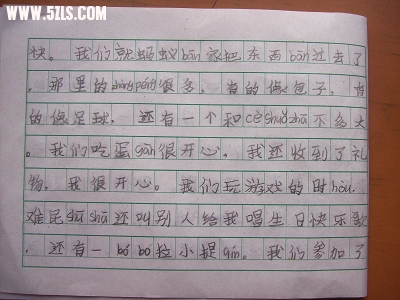 WWW.5ZLS.COM
快。我们就蚂蚁bān家把东西bān过去了
。那里的zhàngpéng很多，有的像包子，有
的像足球，还有一个和cè shuǒ zhǎ不多大
。我们吃蛋gāo很开心，我还收到了礼
物，我很开心。我们玩游戏的时hòu，
难民shū shū还叫别人给我唱生日快乐歌
，还有一bó bo拉小提qín。我们参加了